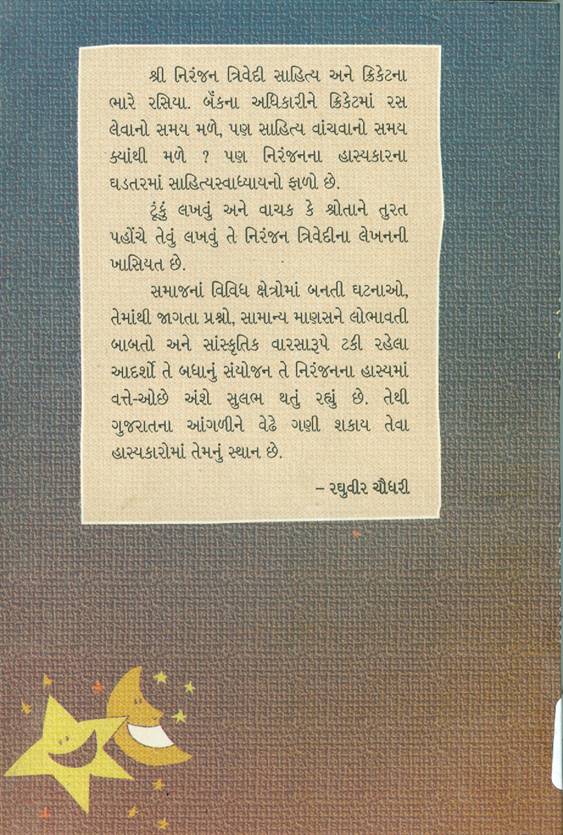 શ્રી નિરંજન ત્રિવેદી સાહિત્ય અને ક્રિકેટના
ભારે રસિયા. બૅંકના અધિકારીને ક્રિકેટમાં રસ
લેવાનો સમય મળે, પણ સાહિત્ય વાંચવાનો સમય
ક્યાંથી મળે ? પણ નિરંજનના હાસ્યકારના
ઘડતરમાં સાહિત્યસ્વાધ્યાયનો ફાળો છે.
ટૂંકું લખવું અને વાચક કે શ્રોતાને તુરત
પહોંચે તેવું લખવું તે નિરંજન ત્રિવેદીના લેખનની
ખાસિયત છે.
સમાજનાં વિવિધ ક્ષેત્રોમાં બનતી ઘટનાઓ,
તેમાંથી જાગતા પ્રશ્નો, સામાન્ય માણસને લોભાવતી
બાબતો અને સાંસ્કૃતિક વારસારૂપે ટકી રહેલા
આદર્શો તે બધાનું સંયોજન તે નિરંજનના હાસ્યમાં
વત્તે-ઓછે અંશે સુલભ થતું રહ્યું છે. તેથી
ગુજરાતના આંગળીને વેઢે ગણી શકાય તેવા
હાસ્યકારોમાં તેમનું સ્થાન છે.
– રઘુવીર ચૌધરી